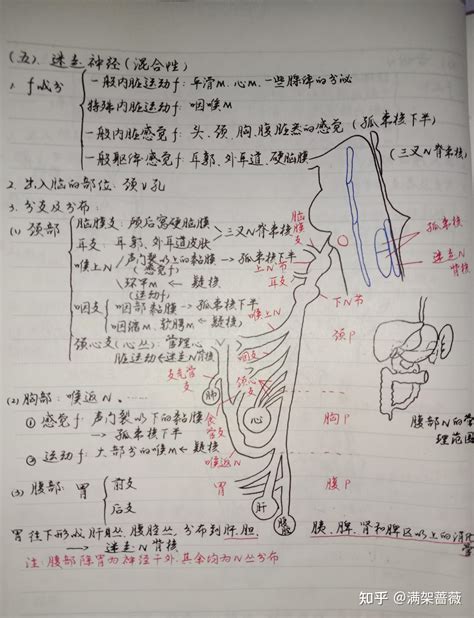 (五). 迷走神经(混合性)
1. f成分
一般内脏运动f: 平滑m、心m、一些腺体的分泌
特殊内脏运动f: 咽喉m
一般内脏感觉f: 头、颈、胸、腹脏器的感觉 (孤束核下半)
一般躯体感觉f: 耳郭、外耳道、硬脑膜 (三叉N脊束核)
2. 出入脑的部位: 颈V孔
3. 分支及分布:
(1) 颈部
脑膜支: 颅后窝硬脑膜
耳支: 耳郭、外耳道皮肤
三叉N脊束核
喉上N
声门裂以上的黏膜 → 孤束核下半
(感觉f)
环甲m ← 疑核
(运动f)
咽支
咽部黏膜 → 孤束核下半
咽缩m、软腭m ← 疑核
颈心支(心丛): 管理心
脏运动 ← 迷走N背核
(2) 胸部: 喉返N、……
① 感觉f: 声门裂以下的黏膜
→ 孤束核下半
② 运动f: 大部分的喉m ← 疑核
(3) 腹部: 胃
前支
后支
胃往下形成肝丛、腹腔丛, 分布到肝、胆、
胰、脾、肾和脾区以上的消化
→ 迷走N背核
注: 腹部除胃为神经干外, 其余均为N丛分布
脑膜支
上N节
耳支
下N节
喉上N
颈P
咽支
颈心支
支气管支
食管支
肺
心
胸P
喉返N
胃
腹P
肝
孤束核
迷走N背核
腹部N的管理范围
知乎 @满架蔷薇